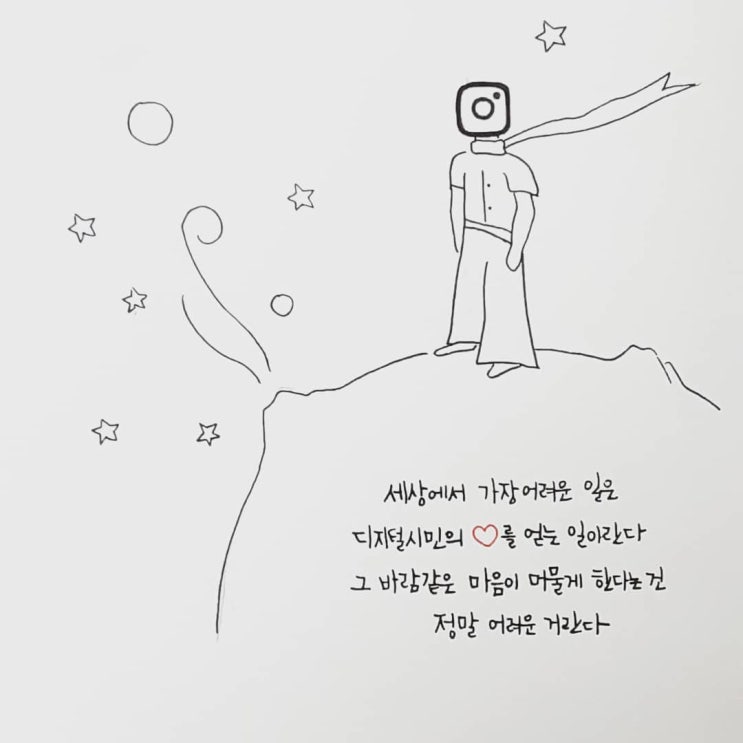 세상에서 가장어려운 일은
디지털시민의 ♡를 얻는 일이란다
그 바람같은 마음이 머물게 한다는건
정말 어려운 거란다